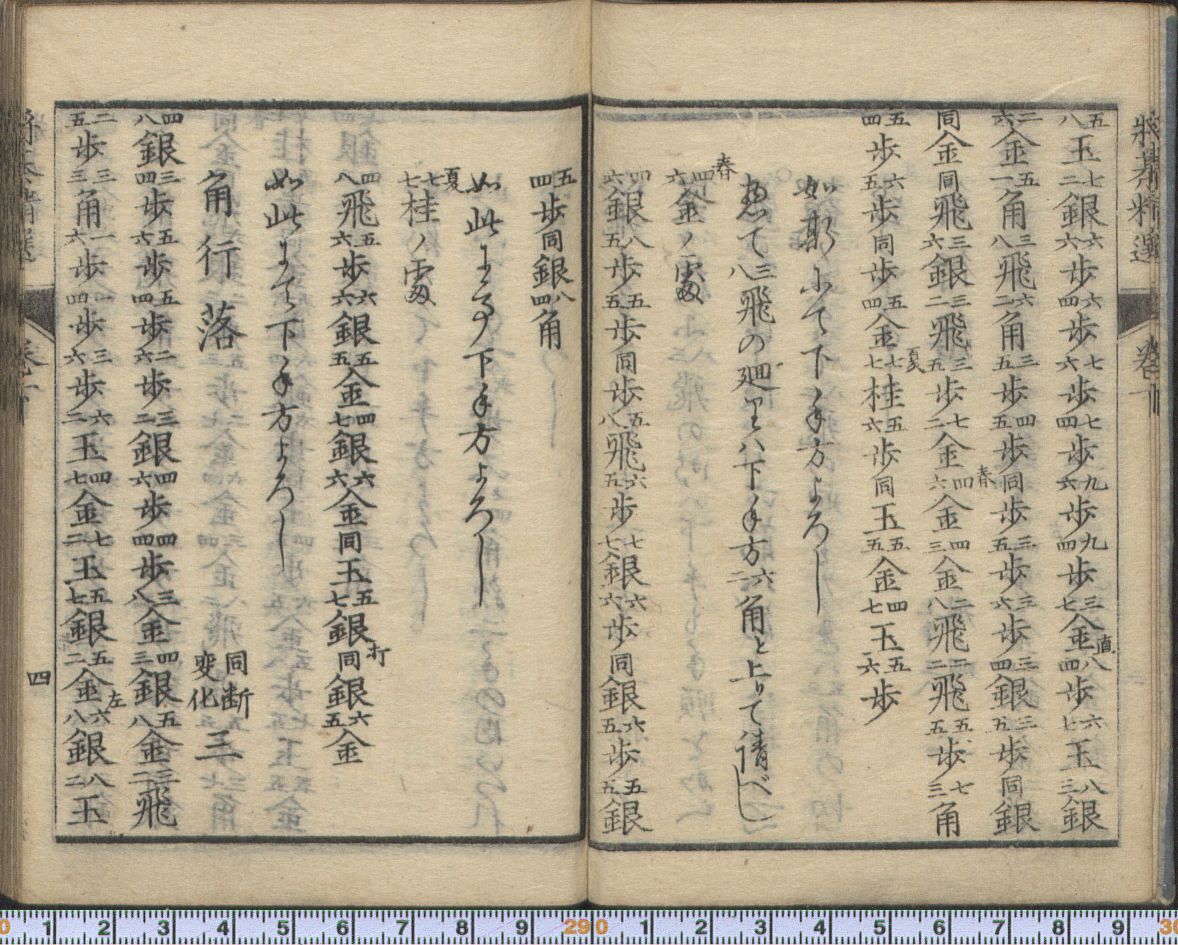 將棊精選 巻下
五八玉七二銀六六歩六四歩七六歩七四歩九六歩九四歩三七金直八四歩六七玉八三銀
二六金五一角三八飛六二角三五歩四五歩同歩三五歩三六歩三四銀三五歩同銀
同金同飛三六銀三二飛三五歩七二金四六金春四三金二八飛二二飛五五歩七三角
五四歩六五歩同歩五四金七七桂夏五六歩同玉五五金四七玉五六歩
如斯にて下手方よろし
惣て三八飛の廻りハ下手方六二角と上りて請べし
春四六金ノ處
四六銀八五歩五五歩同歩五八飛六五歩七七銀六六歩同銀六五歩五五銀
五四歩同銀八四角
如此 下手方よろし
夏七七桂ノ處
四八飛五六歩六六銀五五金四七銀六六金同玉五七銀打同銀六五金
如此にて下手方よろし
角行落 同断変化 三
四八銀三四歩五六歩五四歩二六歩三二銀四六歩四四歩三八金四三銀五八金三二飛
二五歩三三角一六歩一四歩三六歩六二玉四七金七二玉五七銀五二金左六八銀八二玉
四